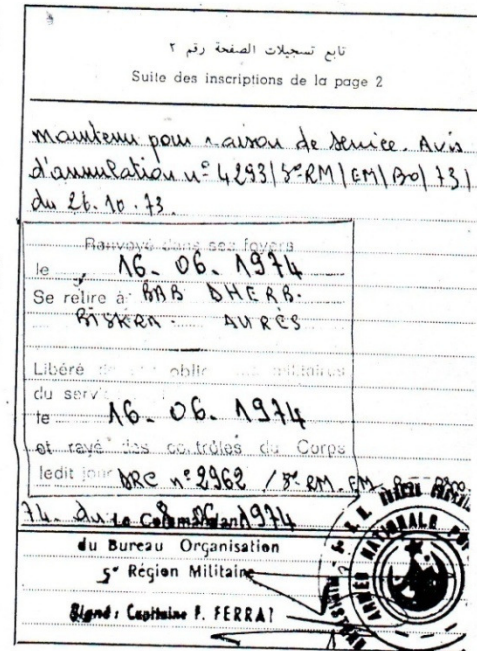 تابع تسجيلات الصفحة رقم ٢
Suite des inscriptions de la page 2
maintenu pour raison de service. Avis
d'annulation n° 4293/5°RM/EM/BO/73/
du 26.10.73.
Renvoyé dans ses foyers
le 16.06.1974
Se retire à BAB DHERB.
BISKRA. AURÈS
Libéré obli militaires
du serv
le 16.06.1974
et rayé des contrôles du Corps
ledit jour DRC n° 2962 / 5°-RM-EM
74. du 1974
Le Commandant
du Bureau Organisation
5° Région Militaire
Signé: Capitaine F. FERRAT
ARMEE NATIONALE